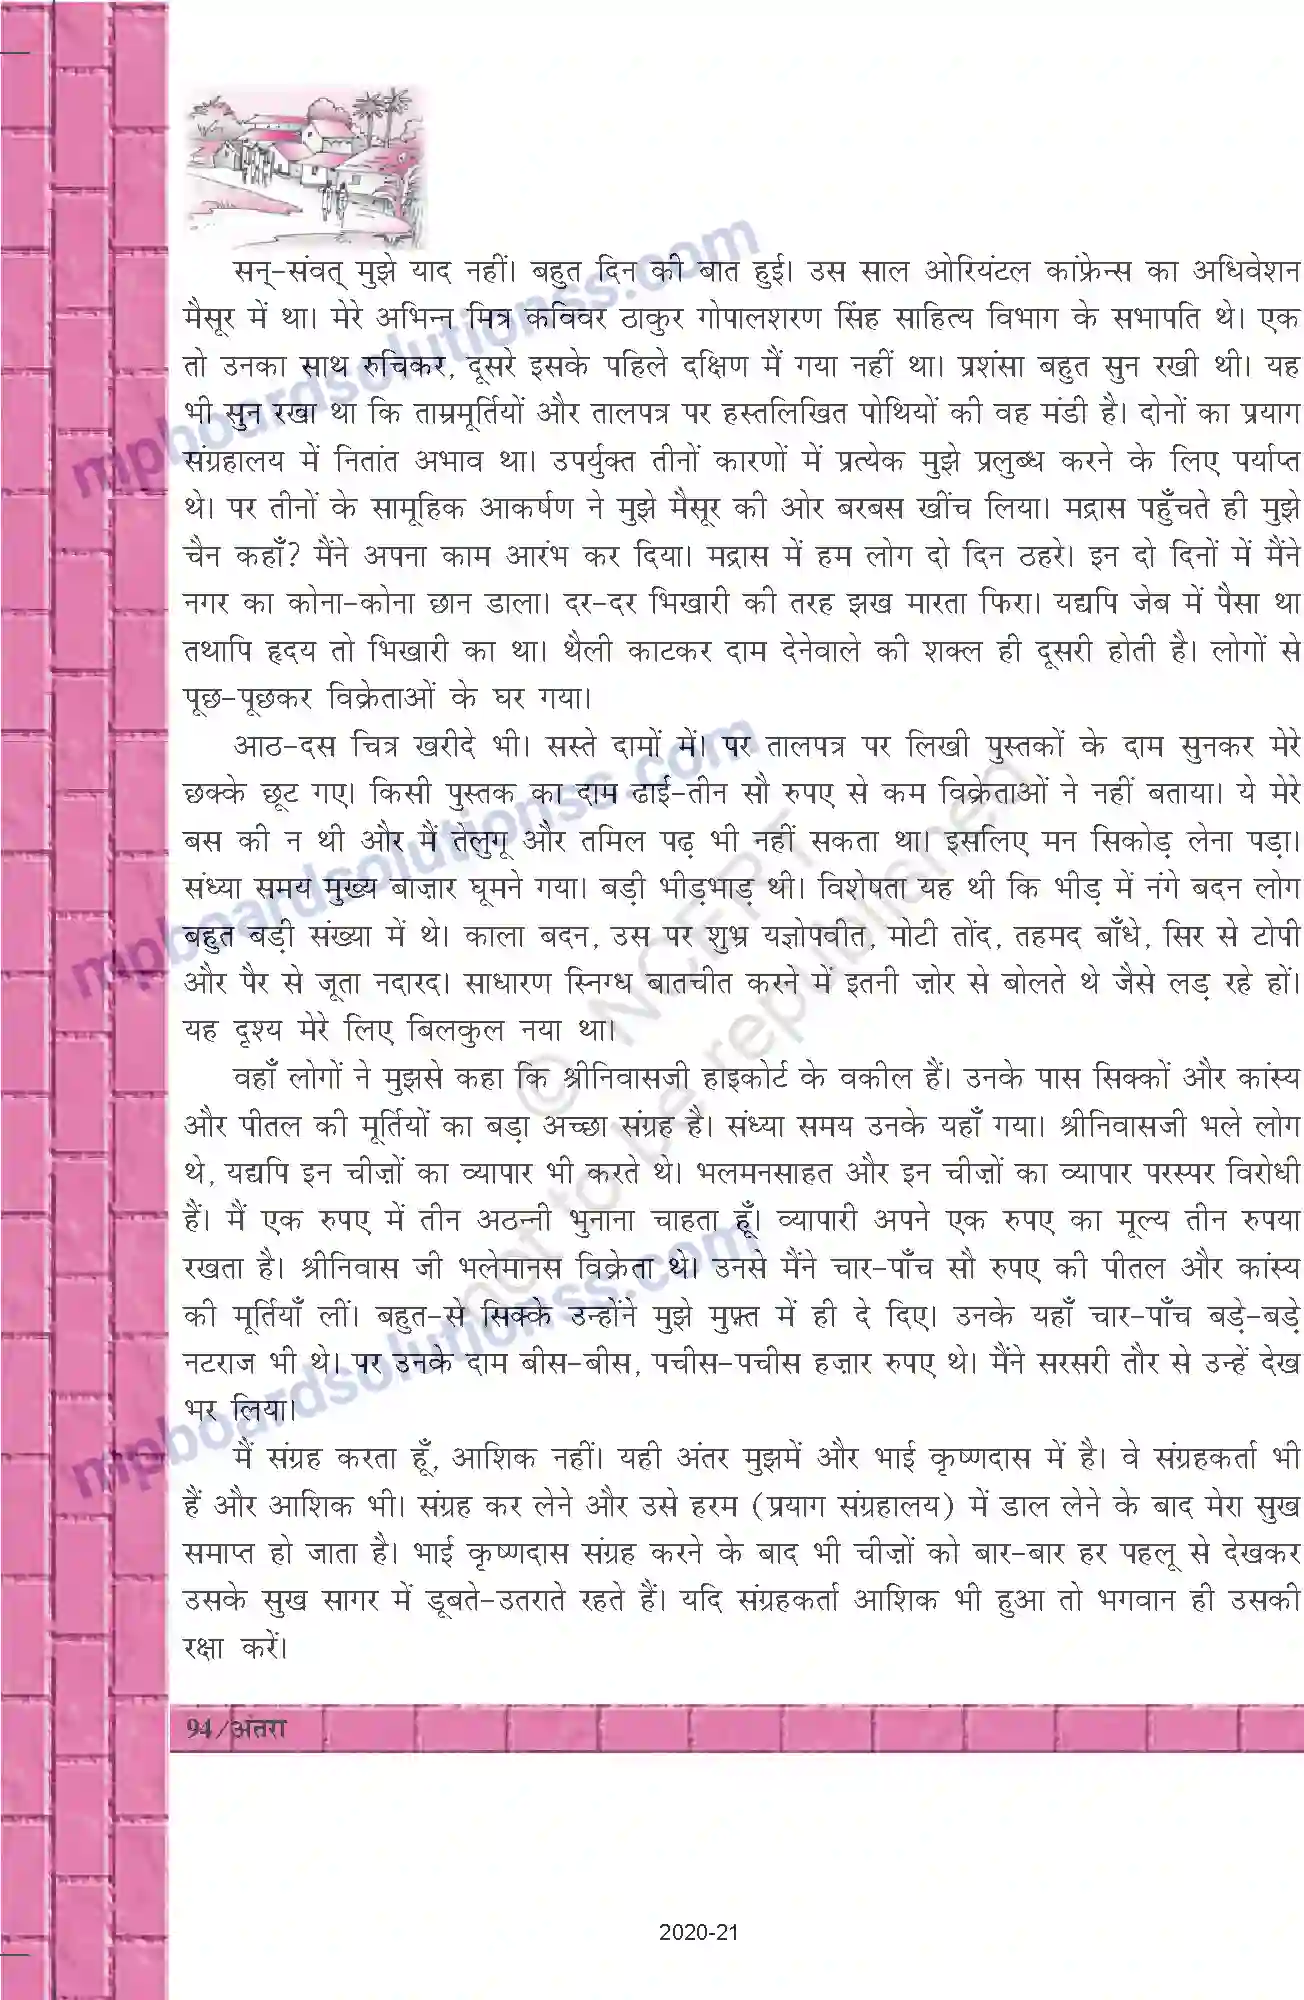 सन्-संवत् मुझे याद नहीं। बहुत दिन की बात हुई। उस साल ओरियंटल कांफ्रेन्स का अधिवेशन
मैसूर में था। मेरे अभिन्न मित्र कविवर ठाकुर गोपालशरण सिंह साहित्य विभाग के सभापति थे। एक
तो उनका साथ रुचिकर, दूसरे इसके पहिले दक्षिण मैं गया नहीं था। प्रशंसा बहुत सुन रखी थी। यह
भी सुन रखा था कि ताम्रमूर्तियों और तालपत्र पर हस्तलिखित पोथियों की वह मंडी है। दोनों का प्रयाग
संग्रहालय में नितांत अभाव था। उपर्युक्त तीनों कारणों में प्रत्येक मुझे प्रलुब्ध करने के लिए पर्याप्त
थे। पर तीनों के सामूहिक आकर्षण ने मुझे मैसूर की ओर बरबस खींच लिया। मद्रास पहुँचते ही मुझे
चैन कहाँ? मैंने अपना काम आरंभ कर दिया। मद्रास में हम लोग दो दिन ठहरे। इन दो दिनों में मैंने
नगर का कोना-कोना छान डाला। दर-दर भिखारी की तरह झख मारता फिरा। यद्यपि जेब में पैसा था
तथापि हृदय तो भिखारी का था। थैली काटकर दाम देनेवाले की शक्ल ही दूसरी होती है। लोगों से
पूछ-पूछकर विक्रेताओं के घर गया।
आठ-दस चित्र खरीदे भी। सस्ते दामों में। पर तालपत्र पर लिखी पुस्तकों के दाम सुनकर मेरे
छक्के छूट गए। किसी पुस्तक का दाम ढाई-तीन सौ रुपए से कम विक्रेताओं ने नहीं बताया। ये मेरे
बस की न थी और मैं तेलुगू और तमिल पढ़ भी नहीं सकता था। इसलिए मन सिकोड़ लेना पड़ा।
संध्या समय मुख्य बाज़ार घूमने गया। बड़ी भीड़भाड़ थी। विशेषता यह थी कि भीड़ में नंगे बदन लोग
बहुत बड़ी संख्या में थे। काला बदन, उस पर शुभ्र यज्ञोपवीत, मोटी तोंद, तहमद बाँधे, सिर से टोपी
और पैर से जूता नदारद। साधारण स्निग्ध बातचीत करने में इतनी ज़ोर से बोलते थे जैसे लड़ रहे हों।
यह दृश्य मेरे लिए बिलकुल नया था।
वहाँ लोगों ने मुझसे कहा कि श्रीनिवासजी हाइकोर्ट के वकील हैं। उनके पास सिक्कों और कांस्य
और पीतल की मूर्तियों का बड़ा अच्छा संग्रह है। संध्या समय उनके यहाँ गया। श्रीनिवासजी भले लोग
थे, यद्यपि इन चीज़ों का व्यापार भी करते थे। भलमनसाहत और इन चीज़ों का व्यापार परस्पर विरोधी
हैं। मैं एक रुपए में तीन अठन्नी भुनाना चाहता हूँ। व्यापारी अपने एक रुपए का मूल्य तीन रुपया
रखता है। श्रीनिवास जी भलेमानस विक्रेता थे। उनसे मैंने चार-पाँच सौ रुपए की पीतल और कांस्य
की मूर्तियाँ लीं। बहुत-से सिक्के उन्होंने मुझे मुफ़्त में ही दे दिए। उनके यहाँ चार-पाँच बड़े-बड़े
नटराज भी थे। पर उनके दाम बीस-बीस, पचीस-पचीस हज़ार रुपए थे। मैंने सरसरी तौर से उन्हें देख
भर लिया।
मैं संग्रह करता हूँ, आशिक नहीं। यही अंतर मुझमें और भाई कृष्णदास में है। वे संग्रहकर्ता भी
हैं और आशिक भी। संग्रह कर लेने और उसे हरम (प्रयाग संग्रहालय) में डाल लेने के बाद मेरा सुख
समाप्त हो जाता है। भाई कृष्णदास संग्रह करने के बाद भी चीज़ों को बार-बार हर पहलू से देखकर
उसके सुख सागर में डूबते-उतराते रहते हैं। यदि संग्रहकर्ता आशिक भी हुआ तो भगवान ही उसकी
रक्षा करें।
94/अंतरा
2020-21
mpboardsolutionss.com
mpboardsolutionss.com
mpboardsolutionss.com
© NCERT
not to be republished